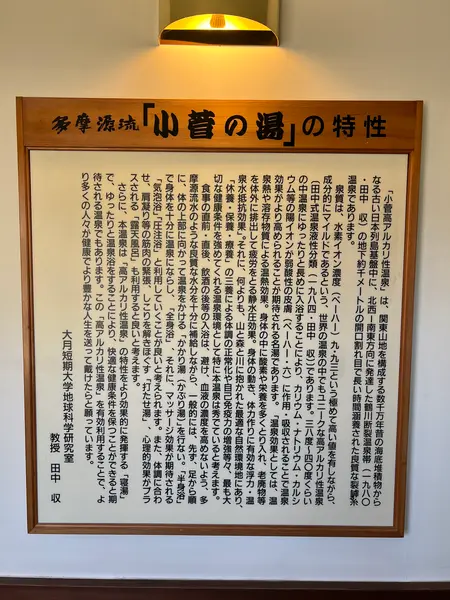 多摩源流「小菅の湯」の特性
「小菅高アルカリ性温泉」は、関東山地を構成する数千万年昔の海底堆積物から
なる古い日本列島基盤中に、北西―南東方向に発達した鶴川断裂温泉帯(一九八〇
・田中 収)の地下約千メートルの開口割れ目で長い時間涵養された良質な裂罅系
温泉であります。
泉質は、水素イオン濃度(ペーハー)九・九三という極めて高い値を有しながら、
成分的にマイルドであるという、世界の温泉の中でもユニークな高アルカリ性温泉
(田中式温泉液性分類(一九八四・田中 収)であります。三九度~四〇度くらい
の中温泉にゆったりと長めに入浴することにより、カリウム・ナトリウム・カルシ
ウム等の陽イオンが弱酸性の皮膚(ペーハー・六)に作用・吸収されることで温泉
効果がより高められることが期待される名湯であります。「温泉効果としては、温
泉熱や溶存物質による温熱効果。身体の中に酸素や栄養を多くとり入れ、老廃物等
を体外に排出して疲労をとる静水圧効果。身体の動き・体力作りに有効な浮力・温
泉水抵抗効果」。それに、何よりも、山と森と川に抱かれた最適な自然環境地にあり、
「休養・保養・療養」の三養による体調の正常化や自己免疫力の増強等々、最も大
切な健康条件を強めてくれる温泉環境として特に本温泉は秀でていると考えます。
食事の直前・直後、飲酒の後等の入浴は、避け、血液の濃度を高めないよう、多
摩源流水のような良質な水分を十分に補給しながら、一般的には、先ず、足から順
に、体の上部に向かって温泉をかける、かかり湯(かぶり湯)を行ない。「半身浴」
で身体を十分に温泉にならし、「全身浴」。それに、マッサージ効果が期待される
「気泡浴」「圧注浴」と利用していくことが良いと考えられます。また、体調に合わ
せ、肩凝り等の筋肉の緊張、しこりを解きほぐす「打たせ湯」、心理的効果がプラ
スされる「露天風呂」も利用すると良いと考えます。
さらに、本温泉は「高アルカリ性温泉」の特性をより効果的に発揮する「寝湯」
で、ゆったりと温泉浴をすることにより、快適な健康条件を保つことができると期
待される温泉でもあります。この「高アルカリ性温泉」を有効利用することで、よ
り多くの人々が健康でより豊かな人生を送って戴けたらと願っています。
大月短期大学地球科学研究室
教授 田中 収